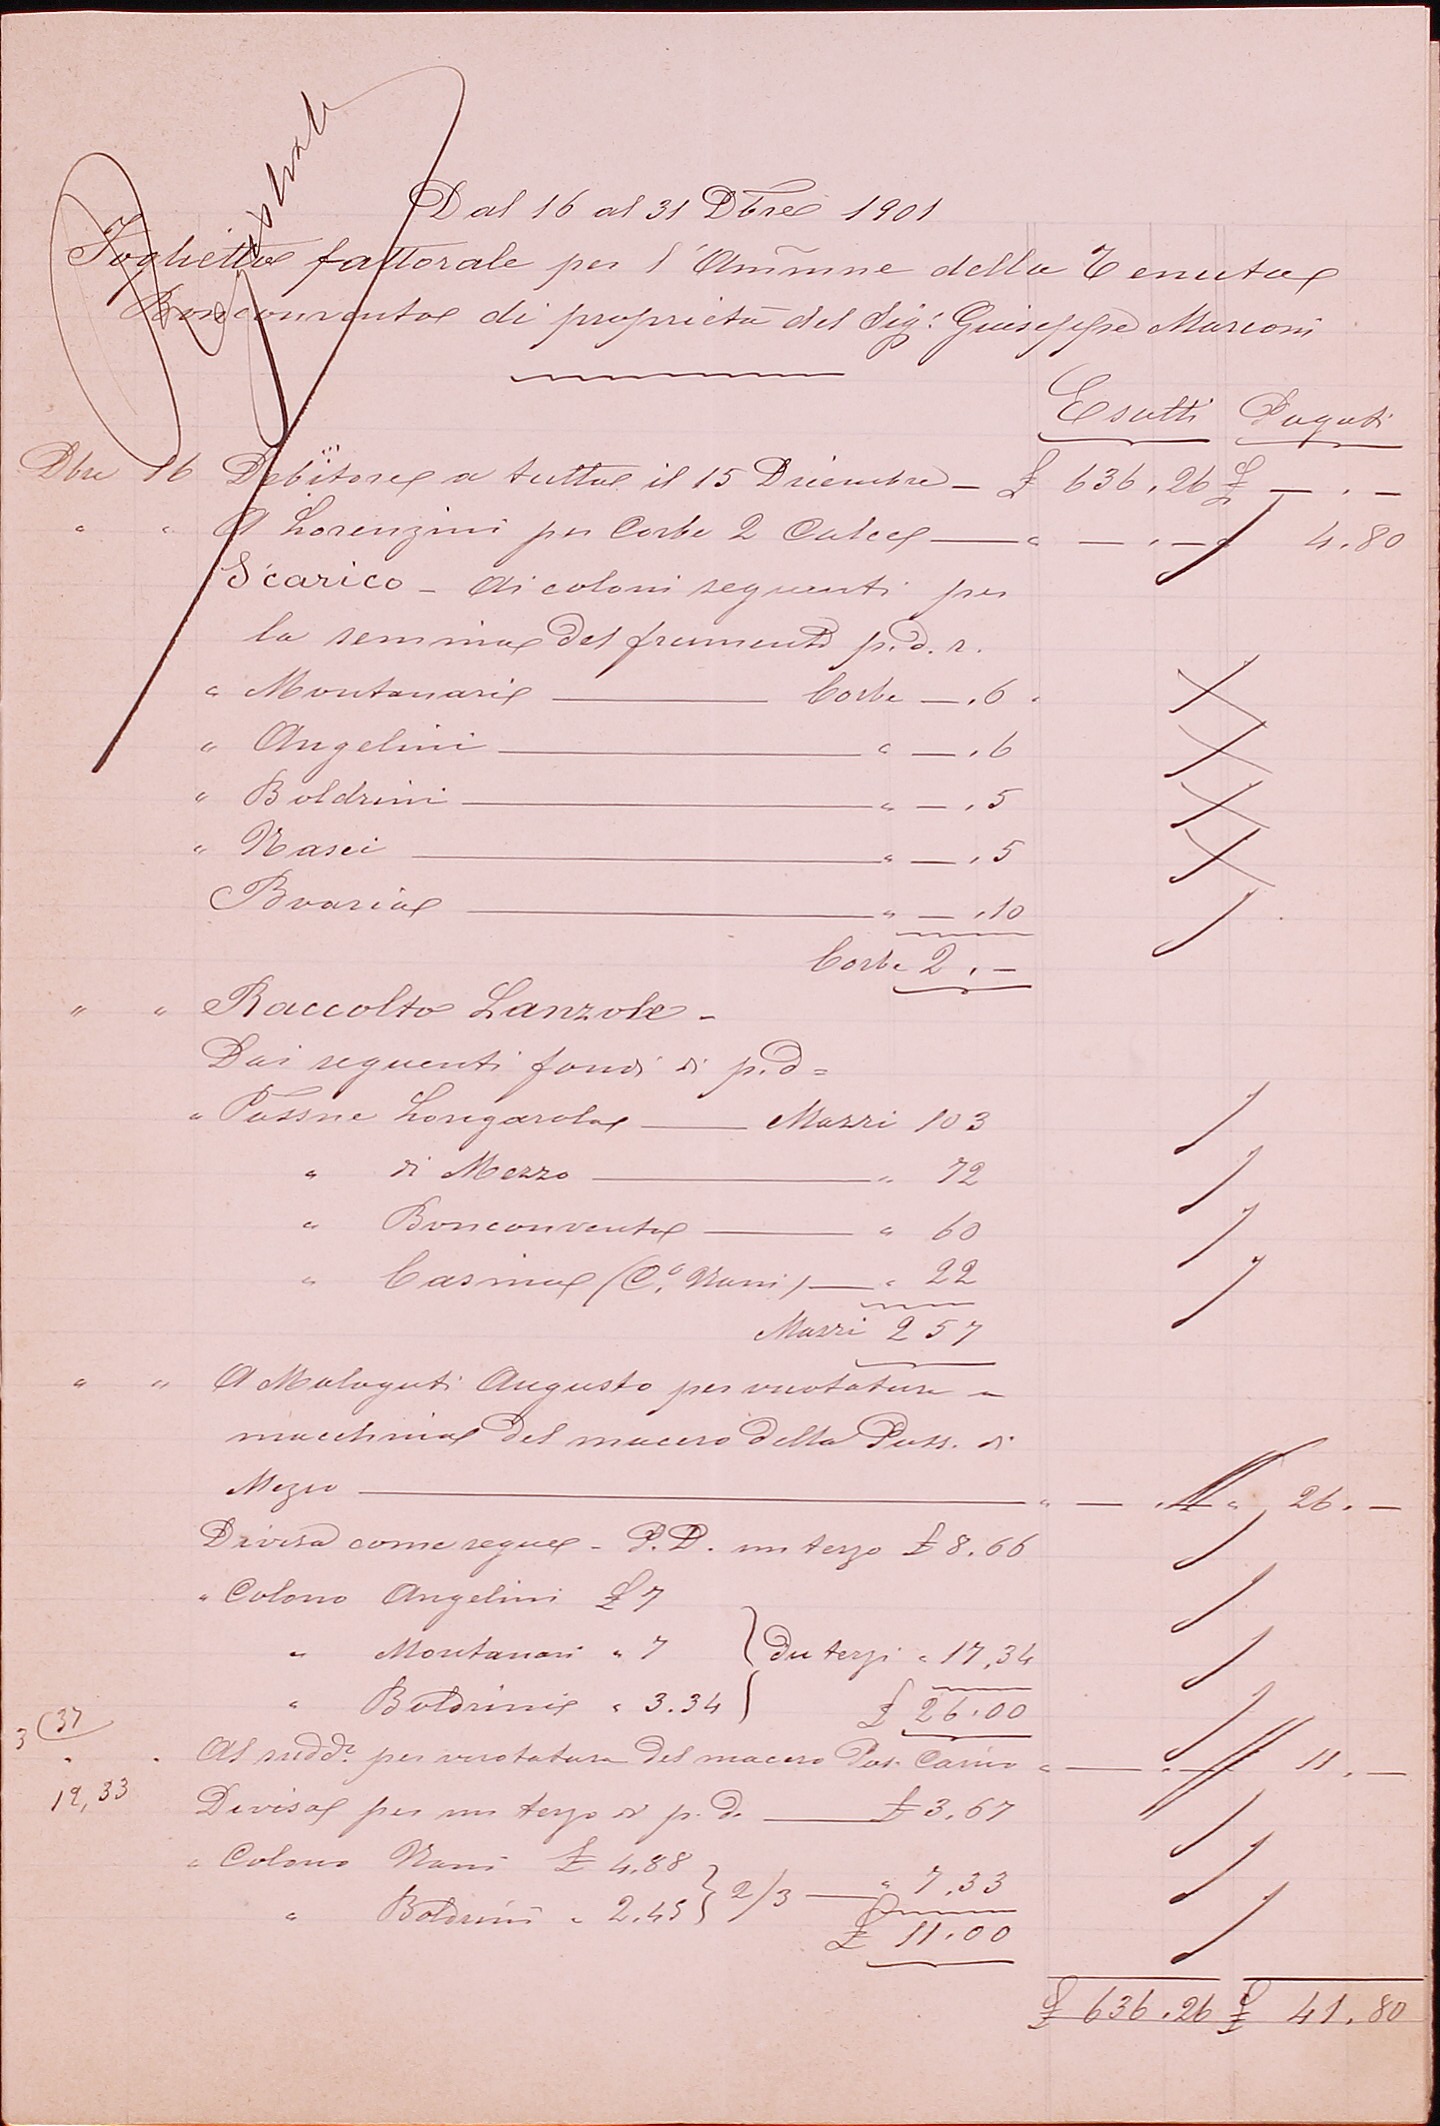 Registrato
Dal 16 al 31 Dbre 1901
Foglietto fattorale per l'Ammne della Tenuta
Bonconvento di proprietà del Sig: Giuseppe Marconi
Esatti Pagati
Dbre 16 Debitore a tutto il 15 Dicembre - £ 636.26 £ — . —
" " A Lorenzini per Corbe 2 Calce — " — . — " 4.80
Scarico - Ai coloni seguenti per
la semina del frumento p.d.r.
" Montanari — Corbe — . 6 "
" Angelini — " — . 6
" Boldrini — " — . 5
" Nasci — " — . 5
Boaria — " — . 10
Corbe 2 . —
" " Raccolto Canzole -
Dai seguenti fondi di p.d =
" Possne Longarola — Mazzi 103
" di Mezzo — " 72
" Bonconvento — " 60
" Casina (Ca. Nanni) — " 22
Mazzi 257
" " A Malaguti Augusto per vuotatura a
macchina del macero della Poss. di
Mezzo — " — . — " 26 . —
Divisa come segue - P.D. un terzo £ 8.66
" Colono Angelini £ 7
" Montanari " 7 } due terzi " 17,34
" Boldrini " 3.34 } £ 26.00
3 (37
" " Al sudd: per vuotatura del macero Pos. Casino " — . — " 11 . —
12,33
Divisa per un terzo di p.d. — £ 3.67
" Colono Nanni £ 4.88
} 2/3 — " 7.33
" Boldrini " 2.45 }
£ 11.00
£ 636.26 £ 41.80